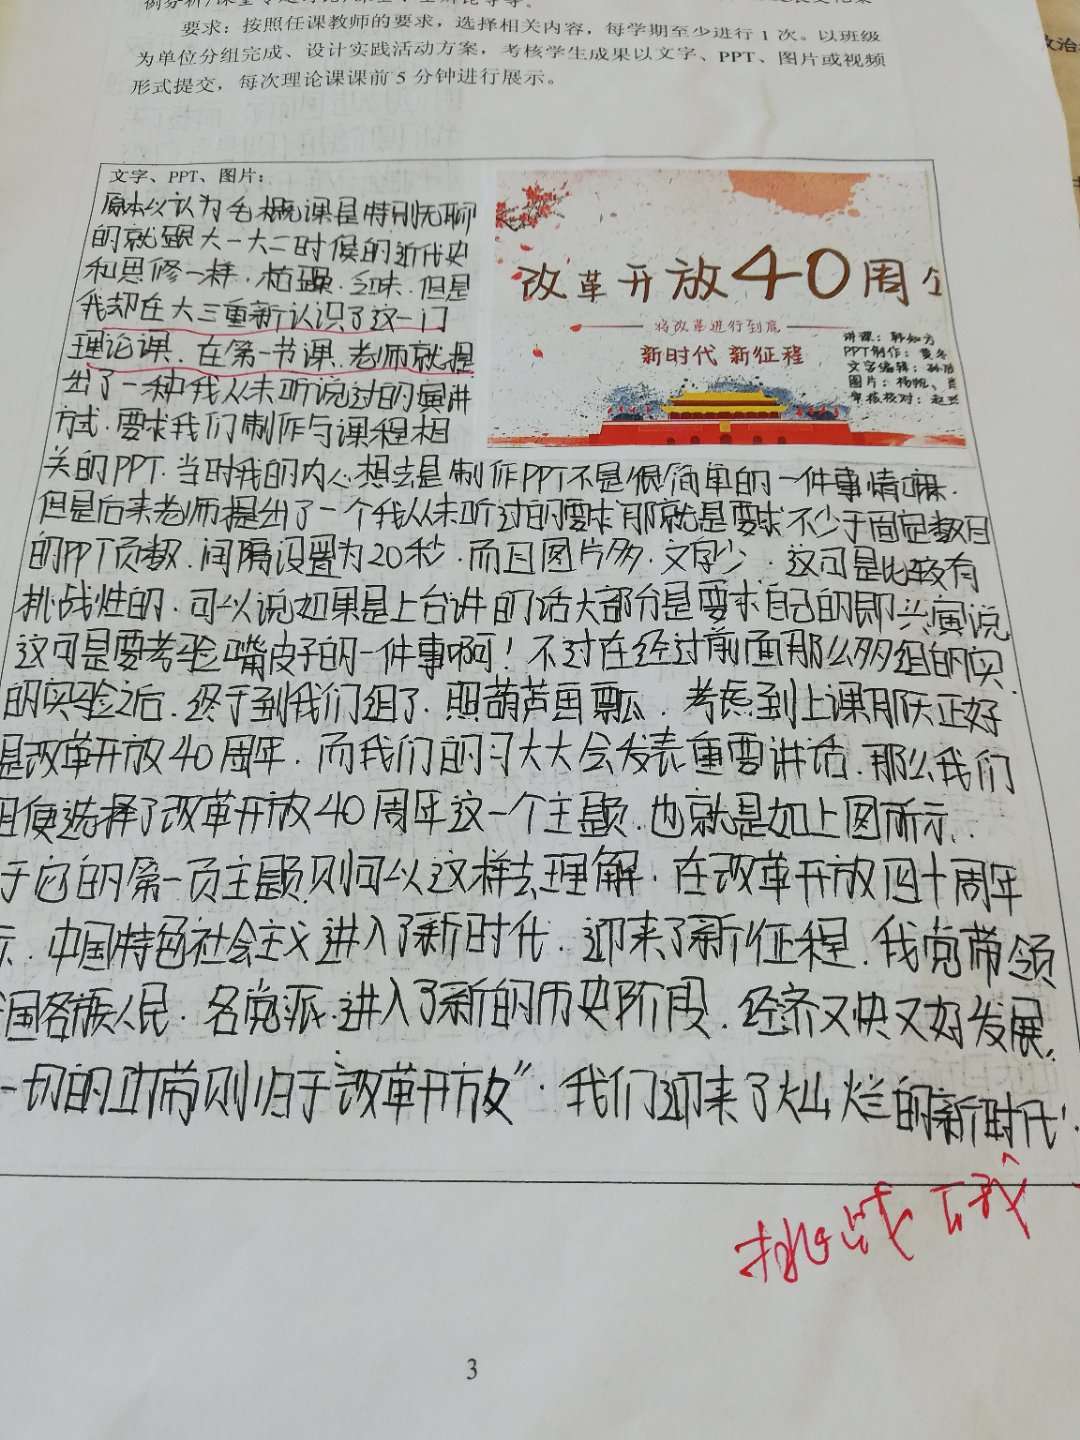 要求：按照任课教师的要求，选择相关内容，每学期至少进行 1 次。以班级
为单位分组完成、设计实践活动方案，考核学生成果以文字、PPT、图片或视频
形式提交，每次理论课课前 5 分钟进行展示。
政治
文字、PPT、图片：
原本以认为毛概课是特别无聊
的就跟大一大二时候的近代史
和思修一样，枯燥，乏味，但是
我却在大三重新认识了这一门
理论课，在第一节课，老师就提
出了一种我从未听说过的演讲
方式，要求我们制作与课程相
关的PPT，当时我的内心想去是制作PPT不是很简单的一件事情嘛，
但是后来老师提出了一个我从未听过的要求那就是要求不少于固定数目
的PPT页数，间隔设置为20秒，而且图片多，文字少，这可是比较有
挑战性的，可以说如果是上台讲的话大部分是要求自己的即兴演说
这可是要考验嘴皮子的一件事啊！不过在经过前面那么多组的实
的实验之后，终于到我们组了，照葫芦画瓢，考虑到上课那天正好
是改革开放40周年，而我们的习大大会发表重要讲话，那么我们
组便选择了改革开放40周年这一个主题，也就是如上图所示，
于它的第一页主题则可以这样去理解，在改革开放四十周年
示，中国特色社会主义进入了新时代，迎来了新征程，我党带领
国各族人民，各党派，进入了新的历史阶段，经济又快又好发展，
一切的功劳则归于"改革开放"，我们迎来了灿烂的新时代！
改革开放40周
将改革进行到底
新时代 新征程
讲课：韩如方
PPT制作：黄冬
文字编辑：孙浩
图片：杨帆、
审核校对：赵
挑战
3